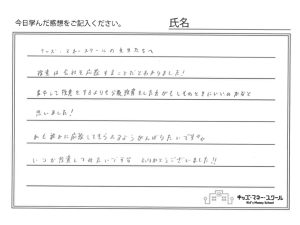 今日学んだ感想をご記入ください。
氏名
キッズ・マネー・スクールの先生たちへ
投資は会社を応援することだとわかりました!
集中して投資をするよりも分散投資をした方がもしものときにいいのかなと
思いました!
私も誰かに応援してもらえるようがんばりたいです
いつか投資してみたいです ありがとうございました!!
キッズ・マネー・スクール
Kid's Money School